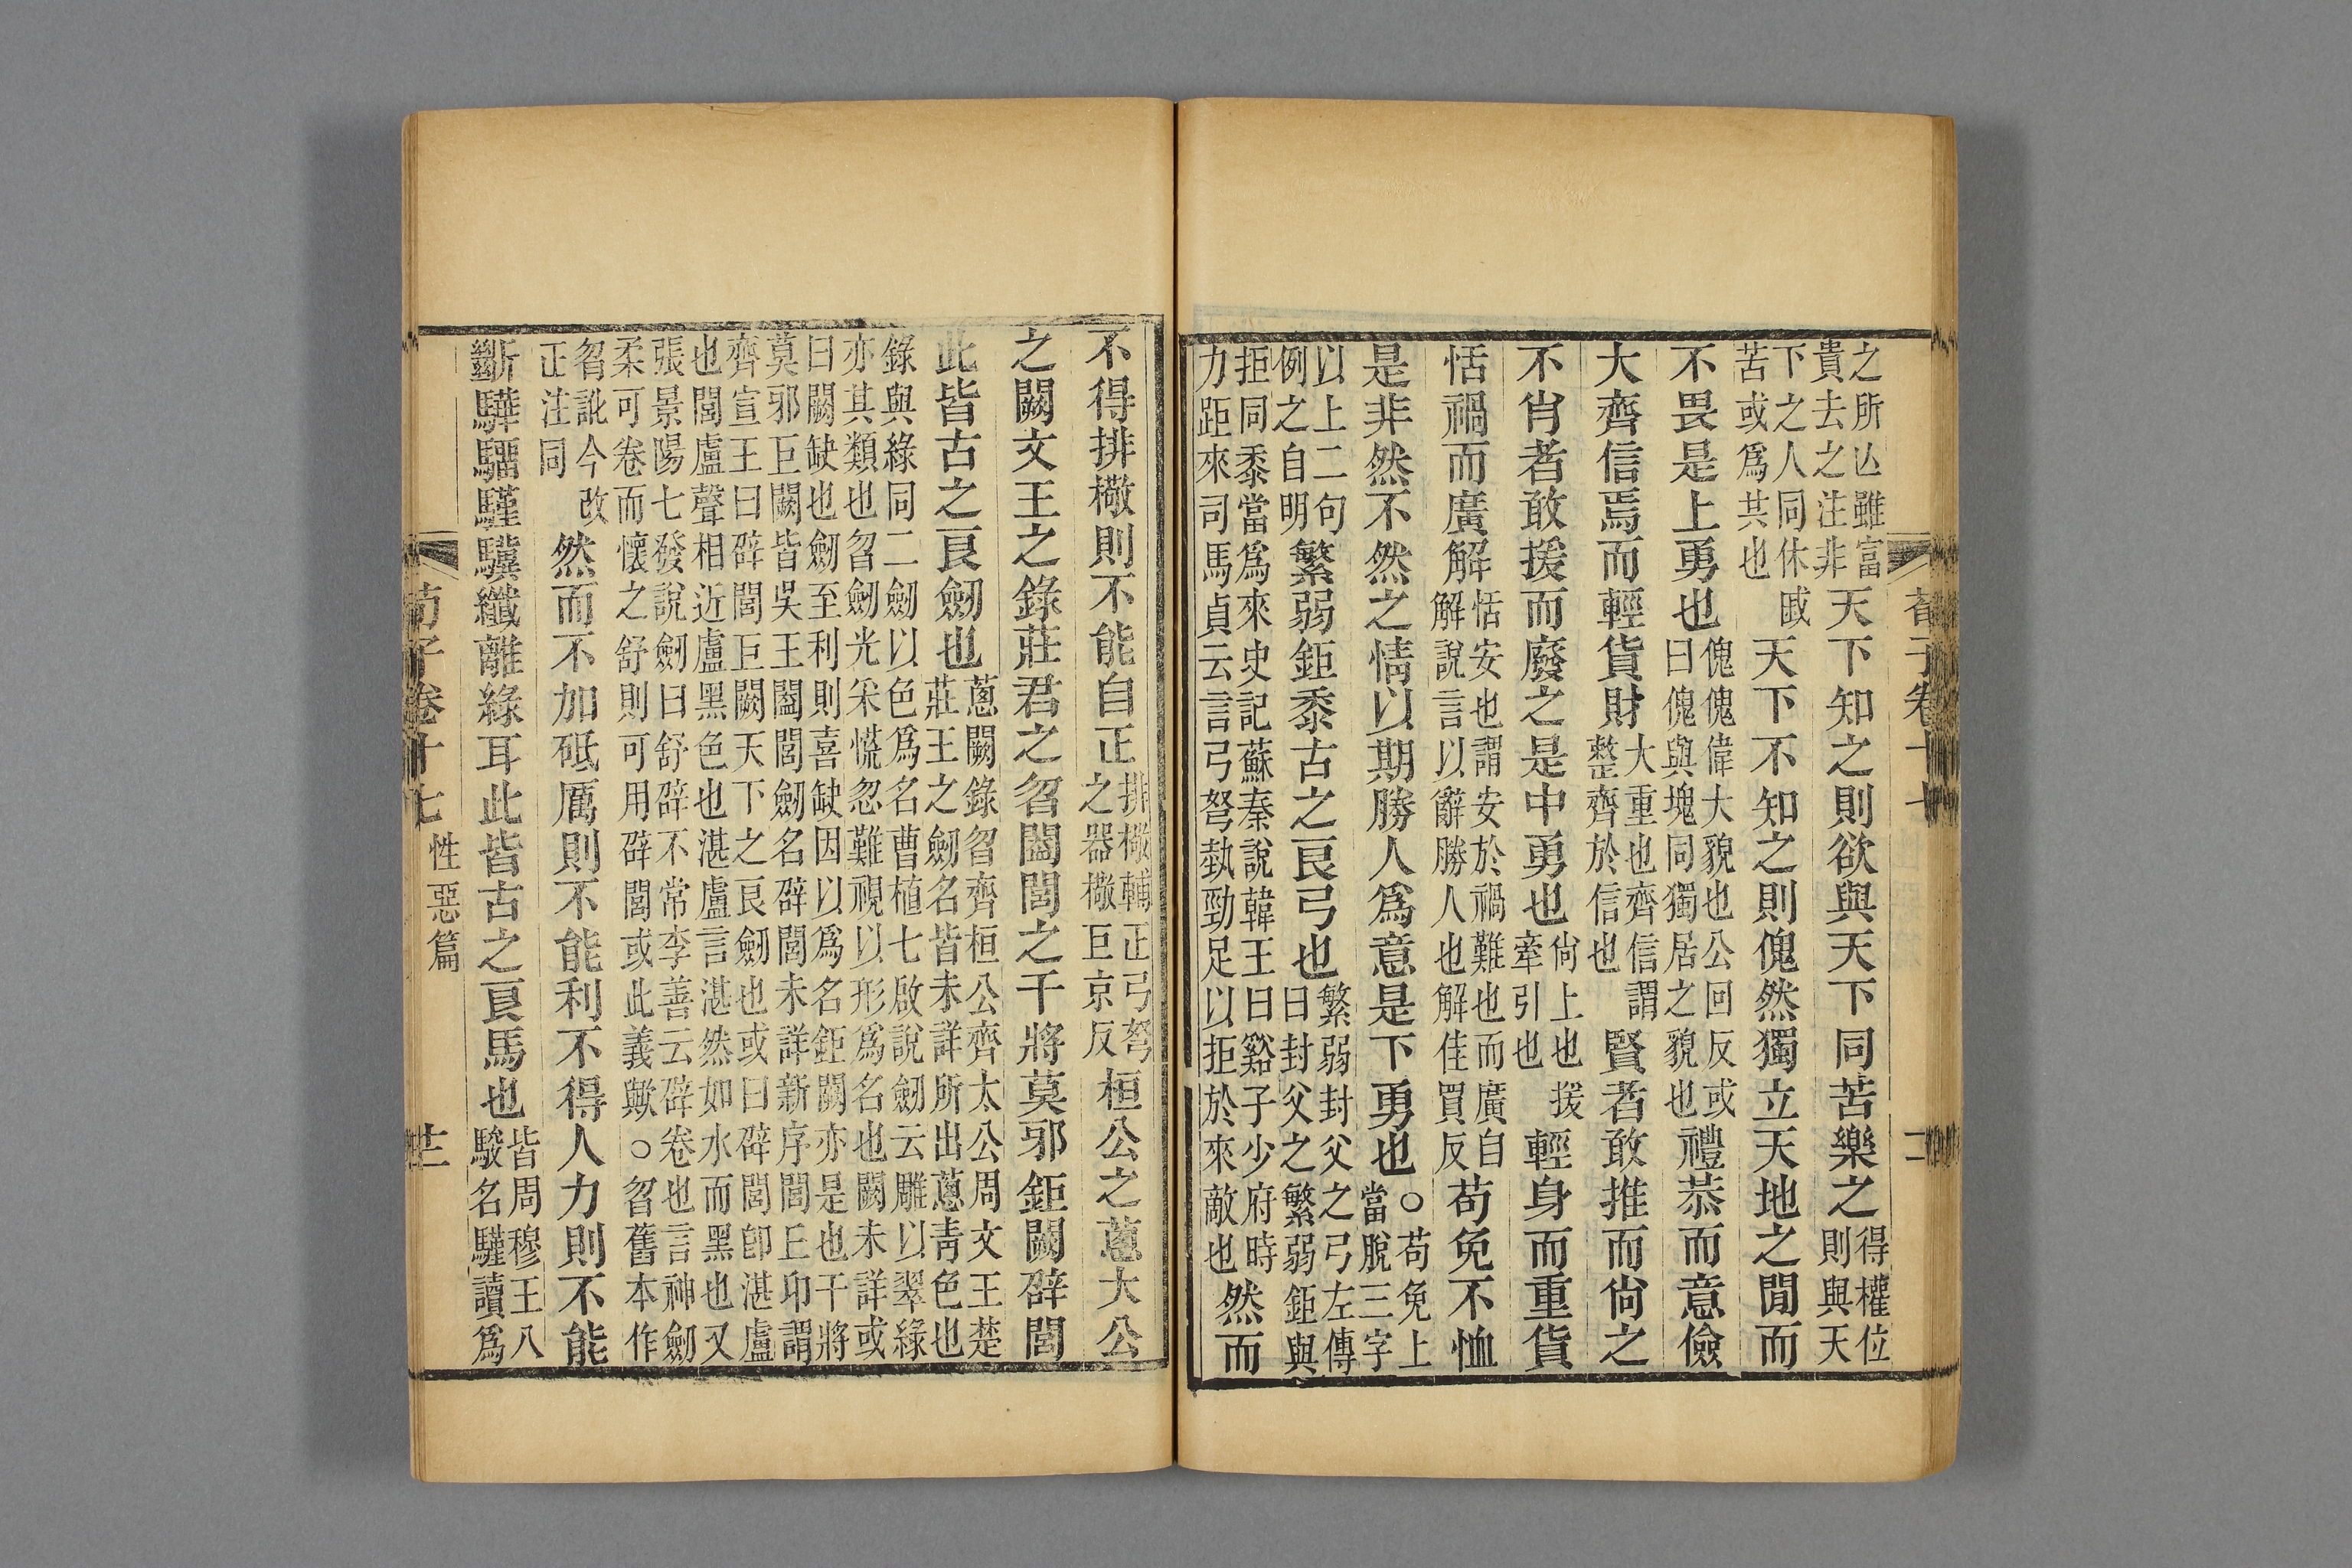 之所亾雖富
貴去之注非
天下知之則欲與天下同苦樂之
得權位
則與天
下之人同休戚
苦或爲共也
天下不知之則傀然獨立天地之閒而
不畏是上勇也
傀傀偉大貌也公回反或
曰傀與塊同獨居之貌也
禮恭而意儉
大齊信焉而輕貨財
大重也齊信謂
整齊於信也
賢者敢推而尙之
不肖者敢援而廢之是中勇也
尙上也援
牽引也
輕身而重貨
恬禍而廣解
恬安也謂安於禍難也而廣自
解說言以辭勝人也解佳買反
苟免不恤
是非然不然之情以期勝人爲意是下勇也
○苟免上
當脫三字
以上二句
例之自明
繁弱鉅黍古之良弓也
繁弱封父之弓左傳
曰封父之繁弱鉅與
拒同黍當爲來史記蘇秦說韓王曰谿子少府時
力距來司馬貞云言弓弩埶勁足以拒於來敵也
然而
不得排㯳則不能自正
排㯳輔正弓弩
之器㯳巨京反
桓公之蔥大公
之闕文王之錄莊君之曶闔閭之干將莫邪鉅闕辟閭
此皆古之良劒也
蔥闕錄曶齊桓公齊太公周文王楚
莊王之劒名皆未詳所出蔥靑色也
錄與綠同二劒以色爲名曹植七啟說劒云雕以翠綠
亦其類也曶劒光采慌忽難視以形爲名也闕未詳或
曰闕缺也劒至利則喜缺因以爲名鉅闕亦是也干將
莫邪巨闕皆吳王闔閭劒名辟閭未詳新序閭丘卬謂
齊宣王曰辟閭巨闕天下之良劒也或曰辟閭卽湛盧
也閭盧聲相近盧黑色也湛盧言湛然如水而黑也又
張景陽七發說劒曰舒辟不常李善云辟卷也言神劒
柔可卷而懷之舒則可用辟閭或此義歟○曶舊本作
曶訛今改
正注同
然而不加砥厲則不能利不得人力則不能
斷驊騮騹驥纖離綠耳此皆古之良馬也
皆周穆王八
駿名騹讀爲
荀子卷十七
性惡篇